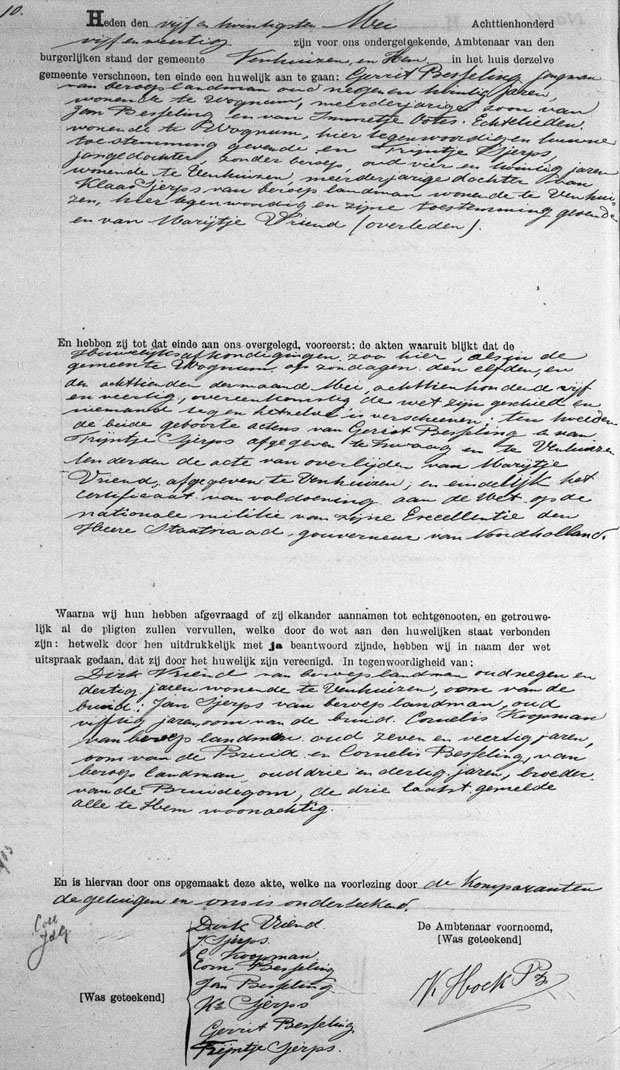 10.
Heden den vijf en twintigsten Mei Achttienhonderd
vijf en veertig zijn voor ons ondergeteekende, Ambtenaar van den
burgerlijken stand der gemeente Venhuizen, en Hem in het huis derzelve
gemeente verschneen, ten einde een huwelijk aan te gaan: Gerrit Besseling jongman
van beroep landman oud negen en twintig jaren,
wonende te Wognum, meerderjarige zoon van
Jan Besseling en van Immetje Ootes. Echtelieden
wonende te Wognum, hier tegenwoordig en hunne
toestemming gevende en Trijntje Sjerps,
jongedochter, zonder beroep, oud vier en twintig jaren
wonende te Venhuizen, meerderjarige dochter van
Klaas Sjerps van beroep landman wonende te Venhui-
zen, hier tegenwoordig en zijne toestemming gevende
en van Marijtje Vriend (overleden).
En hebben zij tot dat einde aan ons overgelegd, vooreerst: de akten waaruit blijkt dat de
Huwelijksafkondigingen zoo hier, als in de
gemeente Wognum op zondagen den elfden, en
den achttienden der maand Mei, achttienhonderd vijf
en veertig, overeenkomstig de wet zijn geschied en
niemand tegen hetzelve is verscheenen; ten tweeden
de beide geboorte actens van Gerrit Besseling en van
Trijntje Sjerps afgegeven te Zwaag en te Venhuizen
ten derden de acte van overlijden van Marijtje
Vriend, afgegeven te Venhuizen; en eindelijk het
certificaat van voldoening aan de wet op de
nationale militie van Zijne Excellentie den
Heere Staatsraad, gouverneur van Noordholland.
Waarna wij hun hebben afgevraagd of zij elkander aannamen tot echtgenooten, en getrouwe-
lijk al de pligten zullen vervullen, welke door de wet aan den huwelijken staat verbonden
zijn: hetwelk door hen uitdrukkelijk met ja beantwoord zijnde, hebben wij in naam der wet
uitspraak gedaan, dat zij door het huwelijk zijn vereenigd. In tegenwoordigheid van:
Dirk Vriend van beroep landman oud negen en
dertig jaren wonende te Venhuizen, oom van de
bruid: Jan Sjerps van beroep landman, oud
vijftig jaren, oom van de bruid. Cornelis Koopman
van beroep landman oud zeven en veertig jaren,
oom van de Bruid en Cornelis Besseling, van
beroep landman, oud drie en dertig jaren, broeder
van de Bruidegom, de drie laatst gemelde
alle te Hem woonachtig.
En is hiervan door ons opgemaakt deze akte, welke na voorlezing door de Komparanten
de getuigen en ons is onderteekend.
Dirk Vriend
J Sjerps
C Koopman
Corn Besseling
Jan Besseling
Ks Sjerps
Gerrit Besseling
Trijntje Sjerps.
[Was geteekend]
De Ambtenaar voornoemd,
[Was geteekend]
K. Hoek Pz